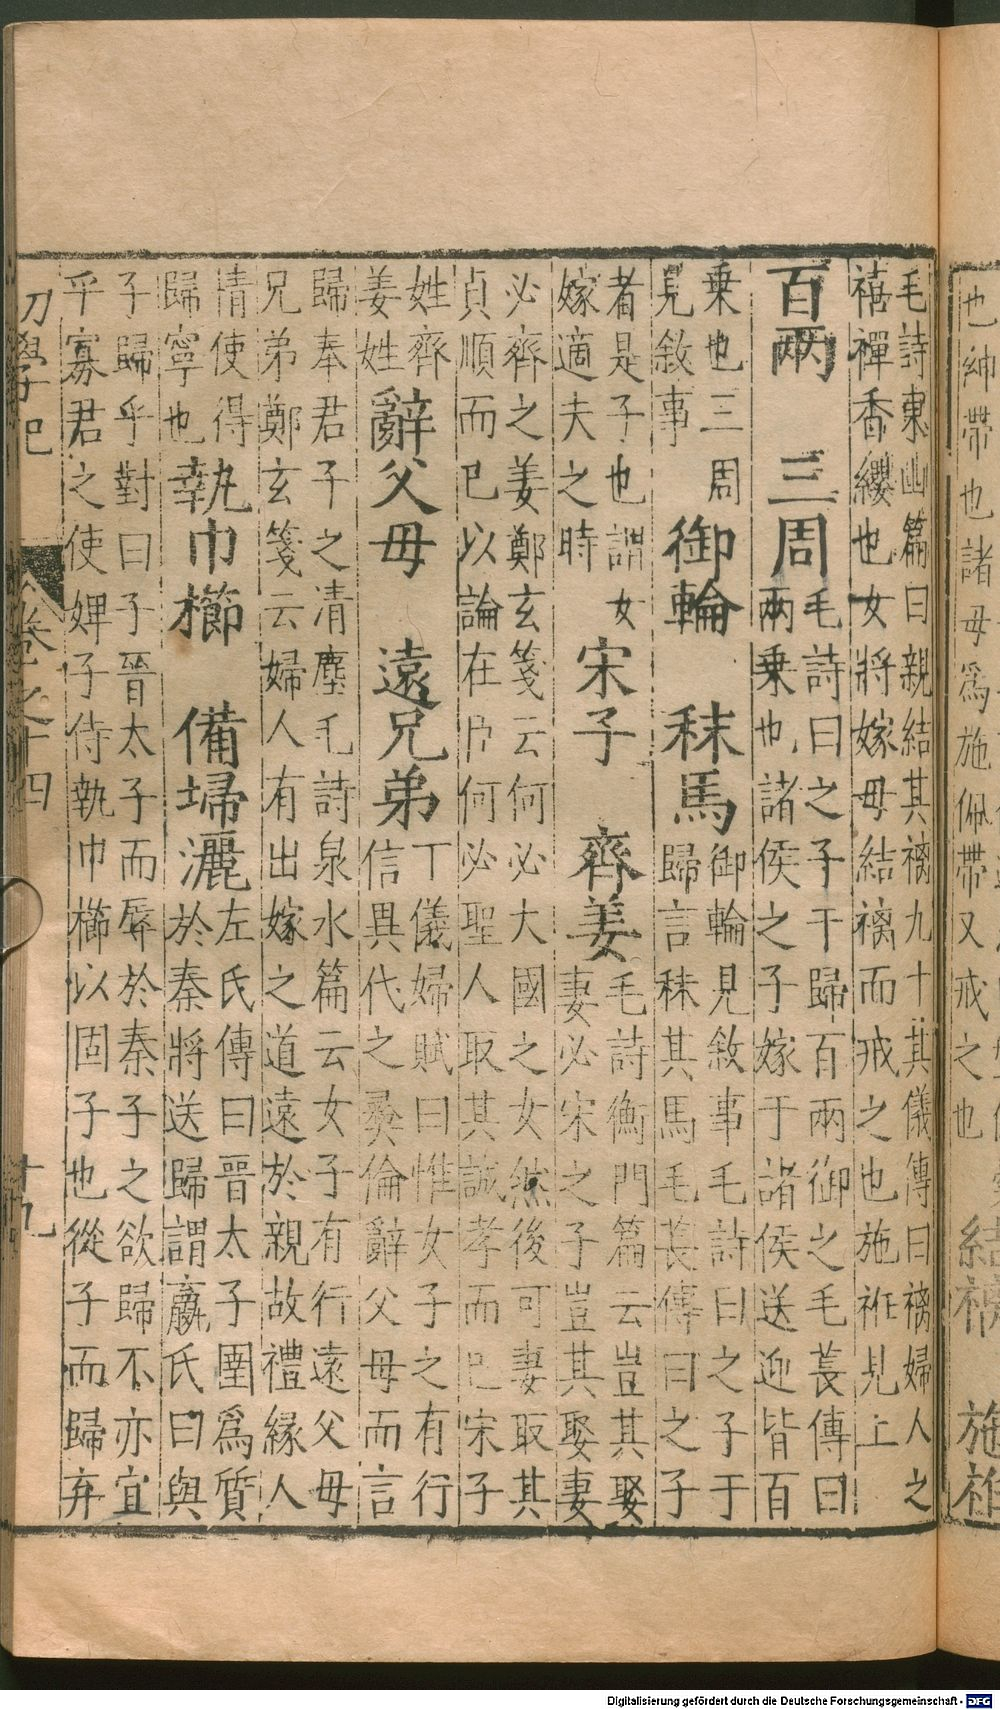 也紳帶也諸母爲施佩帶又戒之也
結褵
施袵
毛詩東幽篇曰親結其褵九十其儀傳曰褵婦人之
禧禪香纓也女將嫁母結褵而戒之也施袵見上
百兩 三周 毛詩曰之子于歸百兩御之毛萇傳曰
兩乗也諸侯之子嫁于諸侯送迎皆百
乗也三周
見敘事
御輪 秣馬 御輪見敘事毛詩曰之子于
歸言秣其馬毛萇傳曰之子
者是子也謂女
嫁適夫之時
宋子 齊姜 毛詩衡門篇云豈其娶
妻必宋之子豈其娶妻
必齊之姜鄭玄箋云何必大國之女然後可妻取其
貞順而已以論在臣何必聖人取其誠孝而已宋子
姓齊
姜姓
辭父母 遠兄弟 丁儀婦賦曰惟女子之有行
信異代之彝倫辭父母而言
歸奉君子之清塵毛詩泉水篇云女子有行遠父母
兄弟鄭玄箋云婦人有出嫁之道遠於親故禮緣人
情使得
歸寧也
執巾櫛 備埽灑 左氏傳曰晉太子圉爲質
於秦將送歸謂嬴氏曰與
子歸乎對曰子晉太子而辱於秦子之欲歸不亦宜
乎寡君之使婢子侍執巾櫛以固子也從子而歸弃
初學記 卷之十四 十九
Digitalisierung gefördert durch die Deutsche Forschungsgemeinschaft - DFG